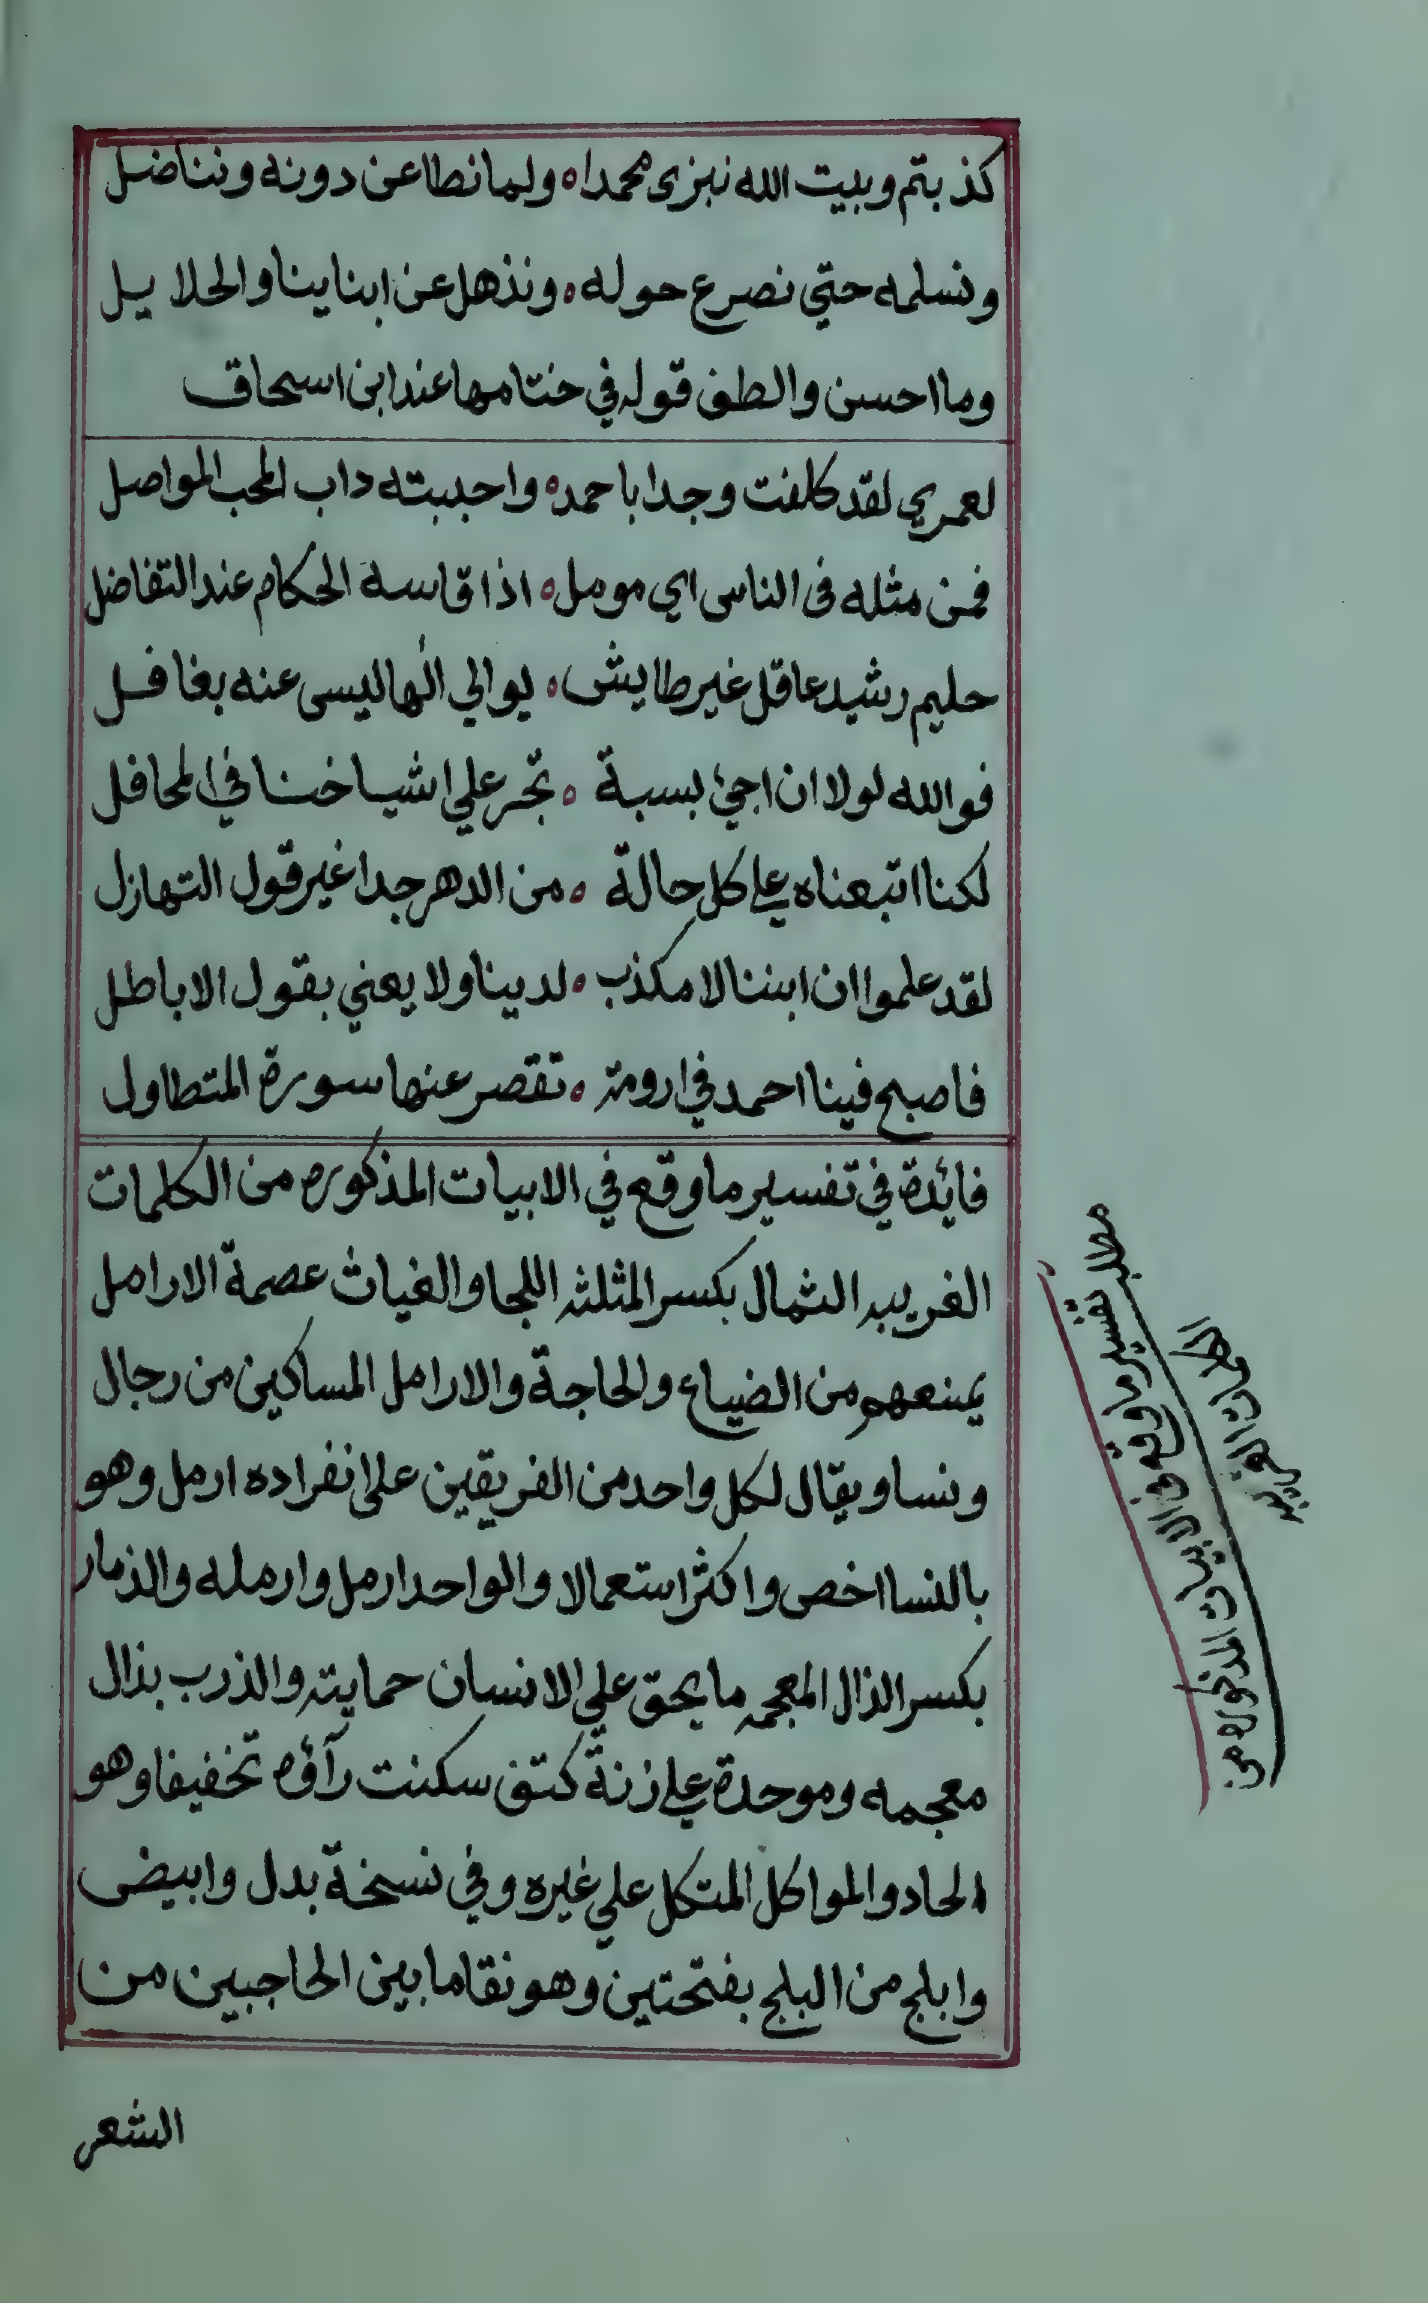 كذبتم وبيت الله نبزى محمدا ه ولما نطاعن دونه ونناضل
ونسلمه حتي نصرع حوله ه ونذهل عن ابناينا والحلايل
وما احسن والطف قوله في ختامها عند ابن اسحاق
لعمري لقد كلفت وجدا باحمد ه واحببته داب المحب المواصل
فمن مثله فى الناس اي مومل ه اذا قاسه الحكام عند التفاضل
حليم رشيد عاقل غير طايش ه يوالي الها ليس عنه بغافل
فوالله لولا ان اجئ بسبة ه تجر علي اشياخنا في المحافل
لكنا اتبعناه علي كل حالة ه من الدهر جدا غير قول التهازل
لقد علموا ان ابننا لا مكذب ه لدينا ولا يعني بقول الاباطل
فاصبح فينا احمد في ارومة ه تقصر عنها سورة المتطاول
فائدة في تفسير ما وقع في الابيات المذكوره من الكلمات
الغريبه الثمال بكسر المثلثه اللجا والغياث عصمة الارامل
يمنعهم من الضياع والحاجة والارامل المساكين من رجال
ونسا ويقال لكل واحد من الفريقين على انفراده ارمل وهو
بالنسا اخص واكثر استعمالا والواحد ارمل وارمله والذمار
بكسر الذال المعجمه ما يحق علي الانسان حمايته والذرب بذال
معجمه وموحدة علي زنة كتف سكنت رآؤه تخفيفا وهو
الحاد والمواكل المتكل علي غيره وفي نسخة بدل وابيض
وابلج من البلج بفتحتين وهو نقا ما بين الحاجبين من
الشعر
مطلب تفسير ما وقع في الابيات المذكوره من
الكلمات الغريبه